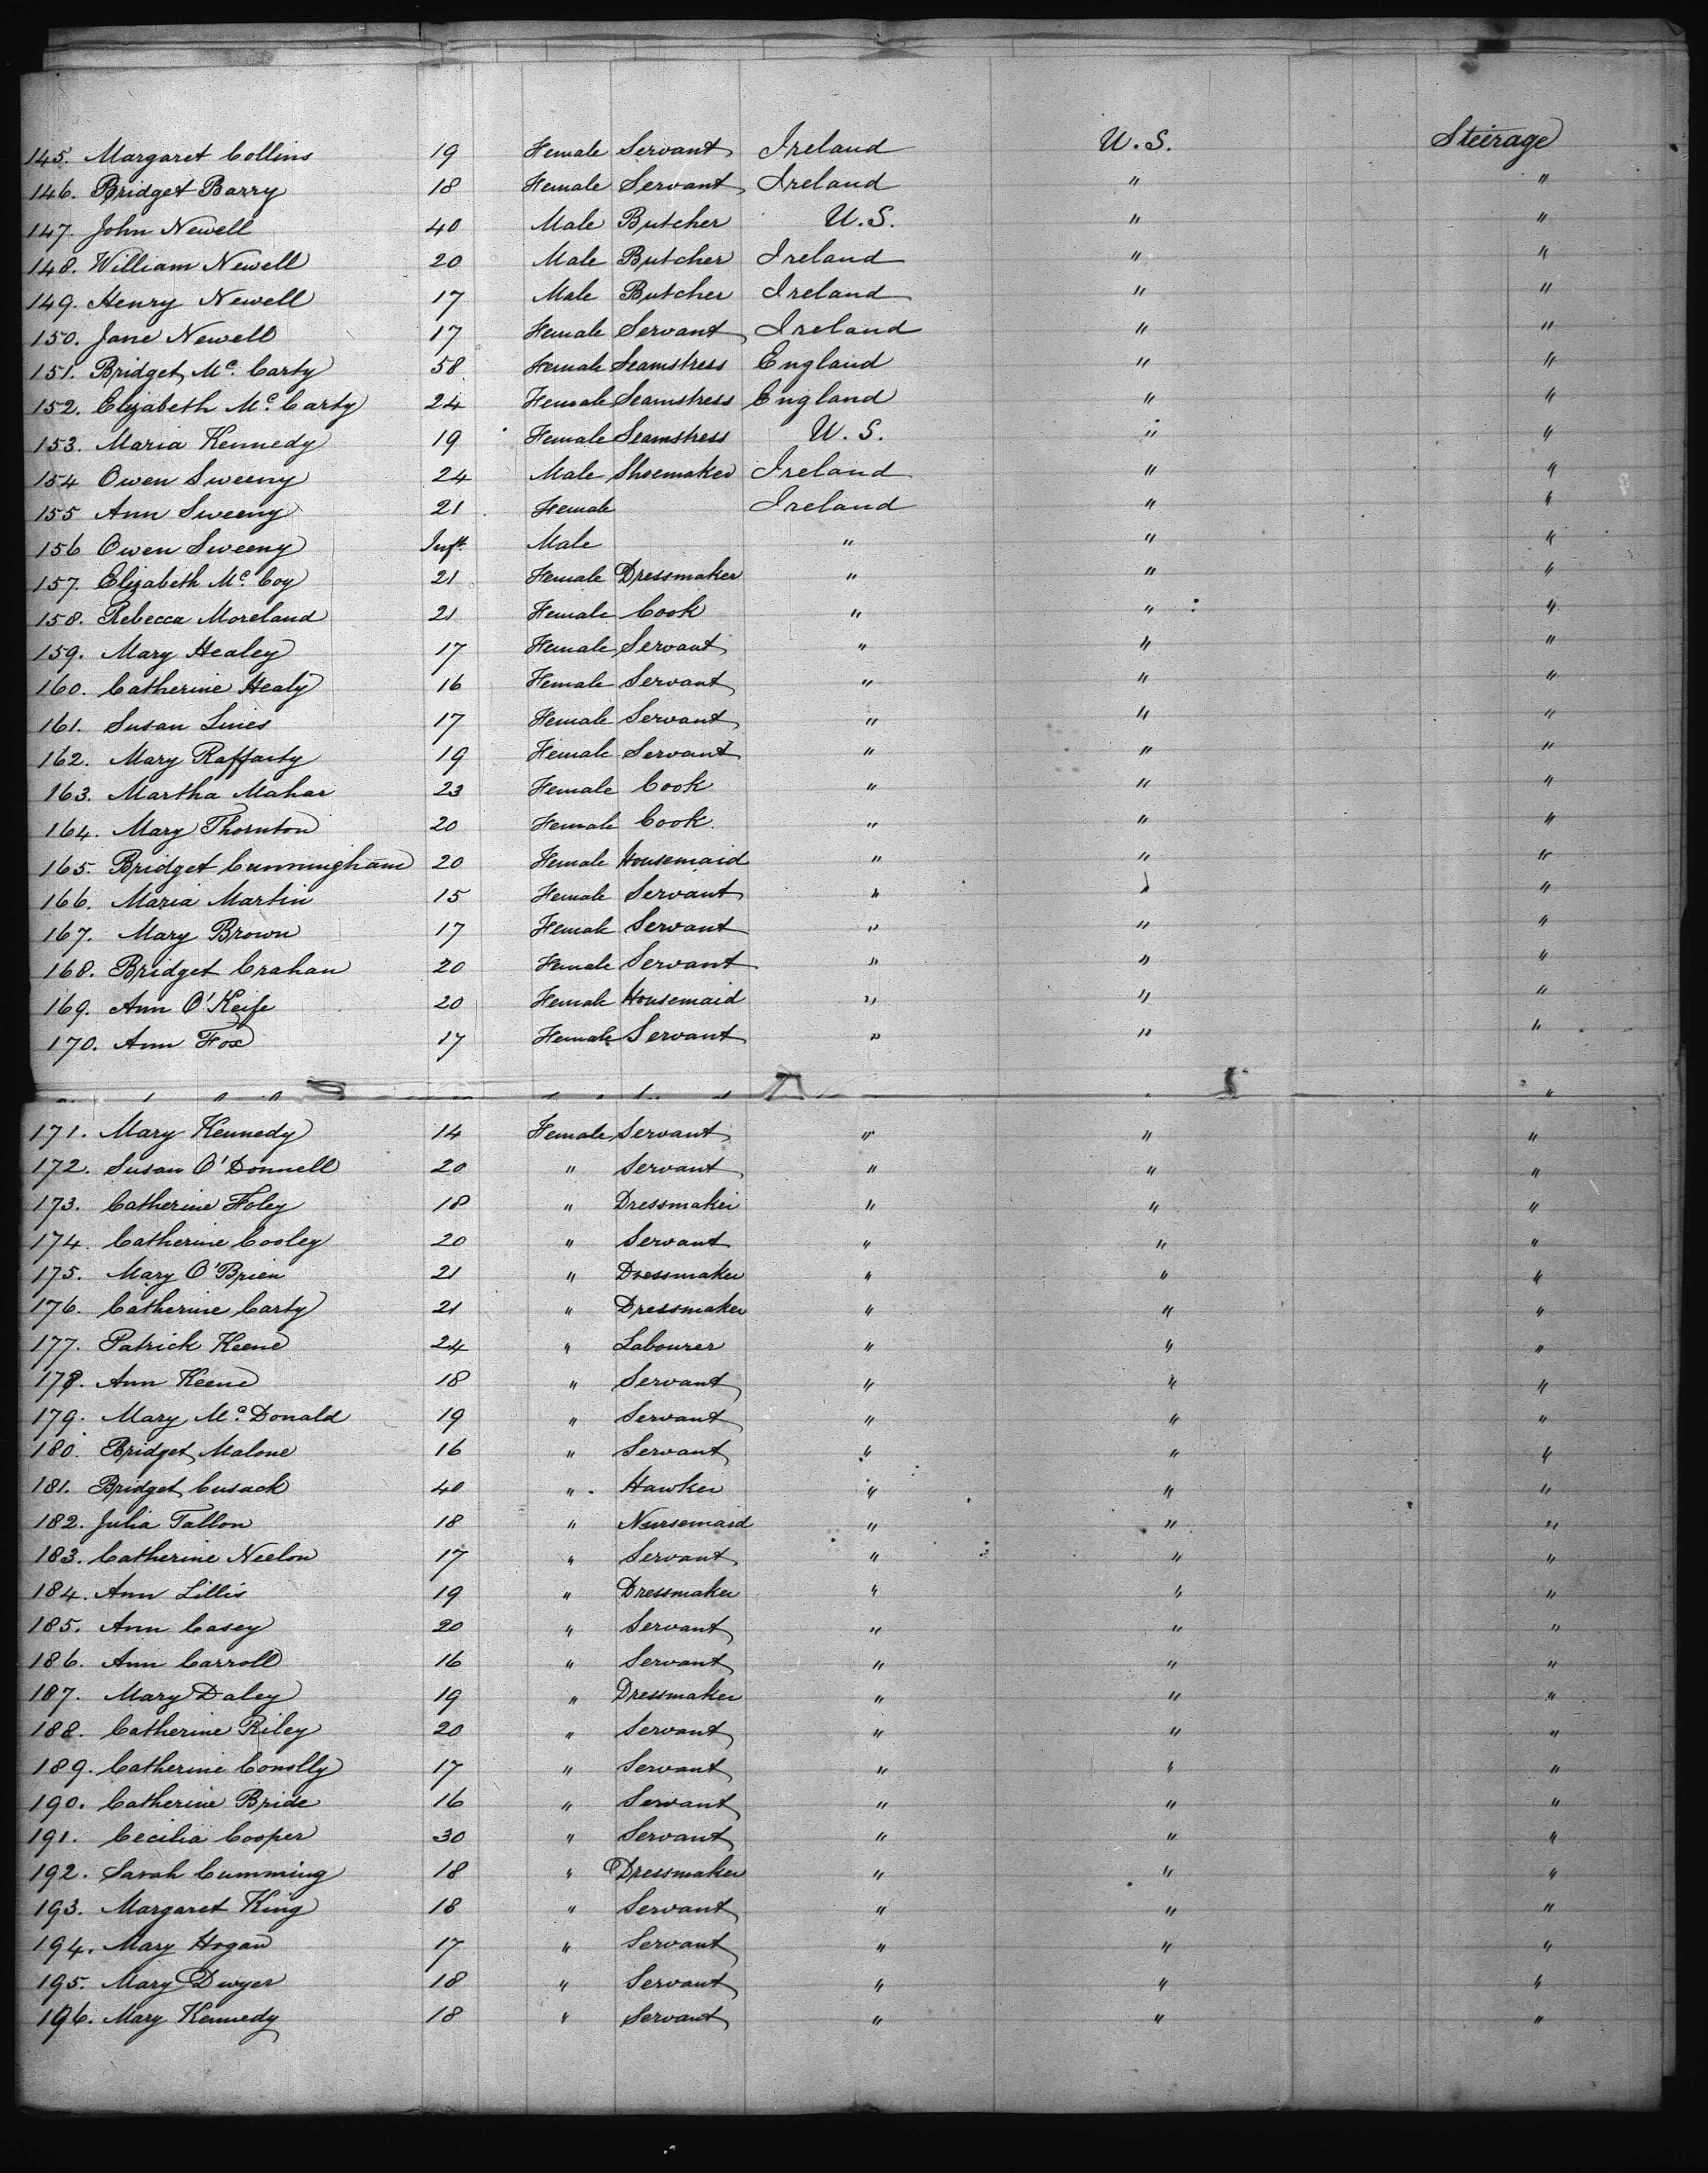 145. Margaret Collins 19 Female Servant Ireland U.S. Steerage
146. Bridget Barry 18 Female Servant Ireland " "
147. John Newell 40 Male Butcher U.S. " "
148. William Newell 20 Male Butcher Ireland " "
149. Henry Newell 17 Male Butcher Ireland " "
150. Jane Newell 17 Female Servant Ireland " "
151. Bridget Mc. Carty 58 Female Seamstress England " "
152. Elizabeth Mc. Carty 24 Female Seamstress England " "
153. Maria Kennedy 19 Female Seamstress U.S. " "
154 Owen Sweeny 24 Male Shoemaker Ireland " "
155 Ann Sweeny 21 Female Ireland " "
156 Owen Sweeny Inft. Male " " "
157. Elizabeth Mc. Coy 21 Female Dressmaker " " "
158. Rebecca Moreland 21 Female Cook " " "
159. Mary Healey 17 Female Servant " " "
160. Catherine Healy 16 Female Servant " " "
161. Susan Lines 17 Female Servant " " "
162. Mary Raffarty 19 Female Servant " " "
163. Martha Mahar 23 Female Cook " " "
164. Mary Thornton 20 Female Cook " " "
165. Bridget Cunningham 20 Female Housemaid " " "
166. Maria Martin 15 Female Servant " " "
167. Mary Brown 17 Female Servant " " "
168. Bridget Crahan 20 Female Servant " " "
169. Ann O'Keife 20 Female Housemaid " " "
170. Ann Fox 17 Female Servant " " "
171. Mary Kennedy 14 Female Servant " " "
172. Susan O'Donnell 20 " Servant " " "
173. Catherine Foley 18 " Dressmaker " " "
174. Catherine Cooley 20 " Servant " " "
175. Mary O'Brien 21 " Dressmaker " " "
176. Catherine Carty 21 " Dressmaker " " "
177. Patrick Keene 24 " Labourer " " "
178. Ann Keene 18 " Servant " " "
179. Mary Mc. Donald 19 " Servant " " "
180. Bridget Malone 16 " Servant " " "
181. Bridget Cusack 40 " Hawker " " "
182. Julia Tallon 18 " Nursemaid " " "
183. Catherine Neelon 17 " Servant " " "
184. Ann Lillis 19 " Dressmaker " " "
185. Ann Casey 20 " Servant " " "
186. Ann Carroll 16 " Servant " " "
187. Mary Daley 19 " Dressmaker " " "
188. Catherine Riley 20 " Servant " " "
189. Catherine Conolly 17 " Servant " " "
190. Catherine Bride 16 " Servant " " "
191. Cecilia Cooper 30 " Servant " " "
192. Sarah Cumming 18 " Dressmaker " " "
193. Margaret King 18 " Servant " " "
194. Mary Hogan 17 " Servant " " "
195. Mary Dwyer 18 " Servant " " "
196. Mary Kennedy 18 " Servant " " "